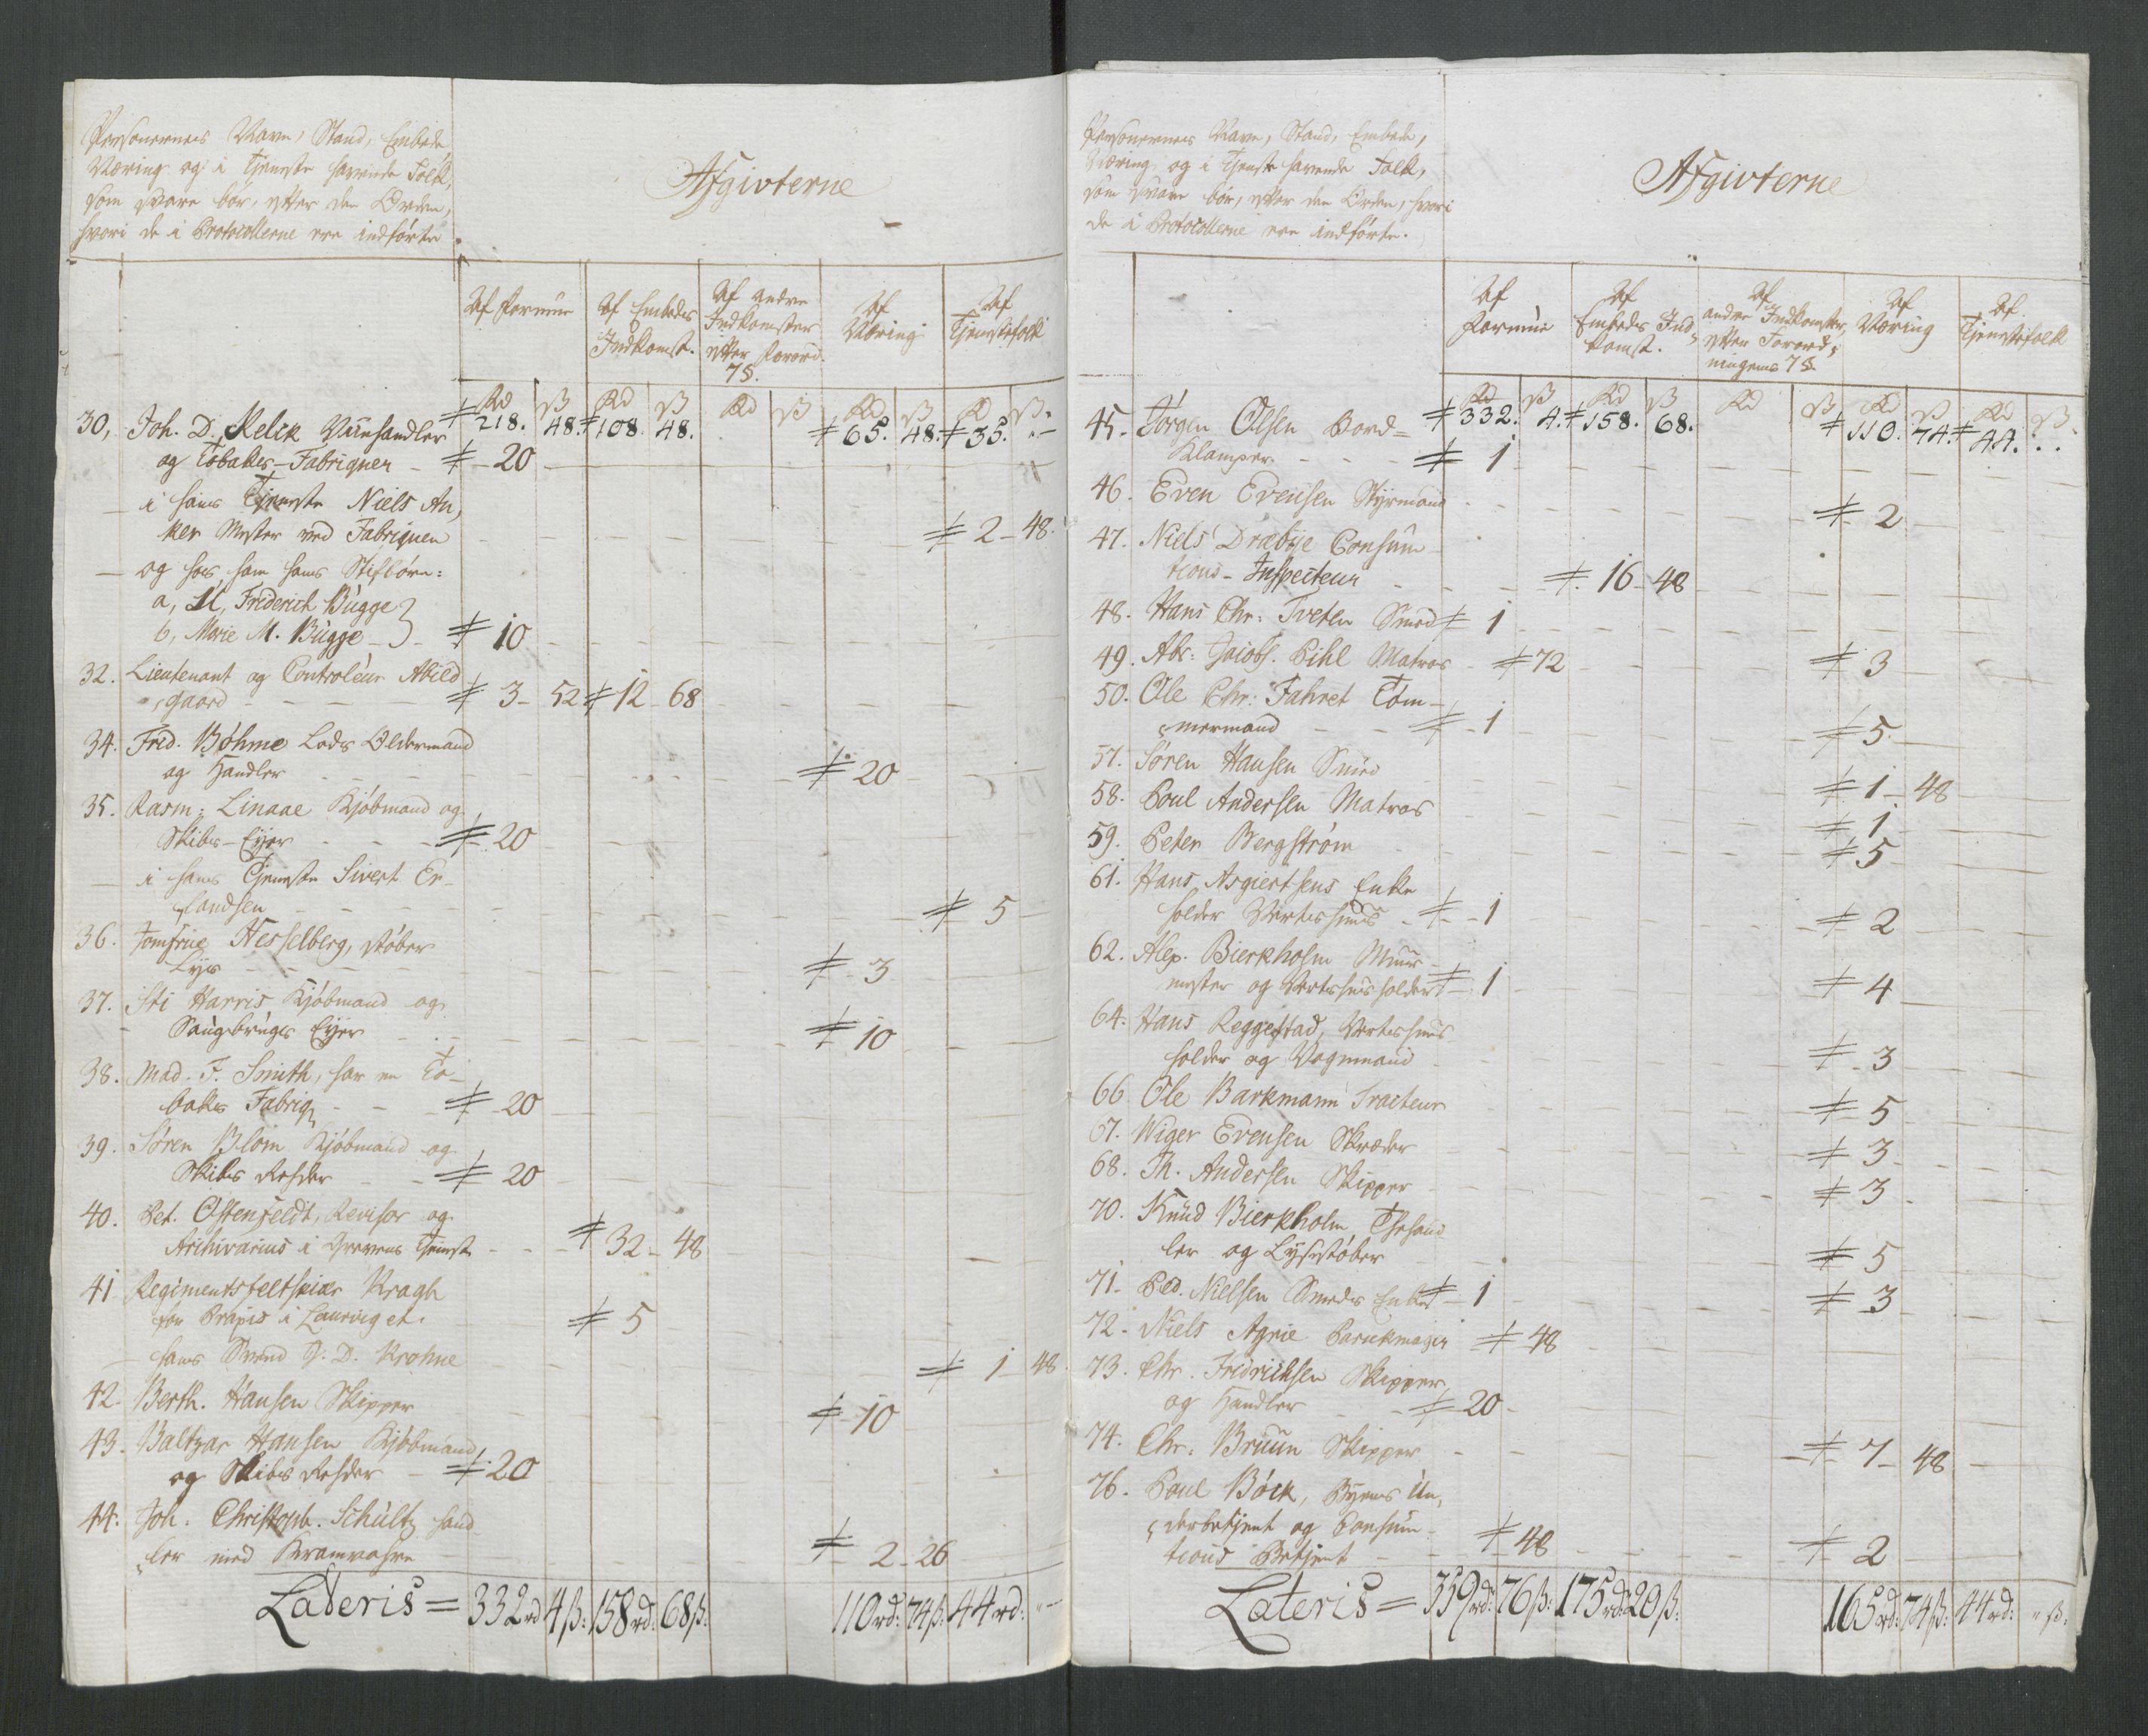 Personernes Navn, Stand, Embede,
Næring og i Tjeneste havende Folk,
som svare bør, efter den Orden,
hvori de i Protocollerne ere indførte
Afgivterne
Af Formue
Af Embeds Indkomst.
Af andre Indkomster efter Forord. 7 §.
Af Næring
Af Tjenestefolk
Rd ß Rd ß Rd ß Rd ß Rd ß
218. 48. 108. 48. 65. 48. 35. "
30, Joh. D. Kelik Viinhandler
og Tobaks-Fabriquer - 20
- i hans Tjeneste Niels An,
ker Mester ved Fabriquen 2 - 48.
- og hos ham hans Stifbørn:
a, M, Friderich Bugge
b, Marie M. Bugge - 10
32. Lieutenant og Controleur Abild
gaard - 3 - 52 12 - 68
34. Frid. Bøhme Lods Oldermand
og Handler 20
35. Rasm: Linaae Kjøbmand og
Skibs-Eyer 20
- i hans Tjeneste Sivert Er-
landsen 5
36. Jomfrue Hesselberg, støber
Lys 3
37. Iti Harris Kjøbmand og
Saugbrugs Eyer 10
38. Mad. F. Smith, har en To-
baks Fabriq 20
39. Søren Blom Kjøbmand og
Skibs Rehder 20
40. Pet. Ostenfeldt, Revisor og
Archivarius i Grevens Tjeneste 32 - 48
41 Regimentsfeltskiær Kragh
for Praxis i Laurvig et. 5
- hans Svend J. D. Krohne 1 - 48
42. Berth. Hansen Skipper 10
43. Baltzar Hansen Kjøbmand
og Skibs Rehder - 20
44. Joh. Christoph. Schultz hand
ler med Kramvahre 2 - 26
Lateris = 332 rd 4 ß: 158 rd: 68 ß: 110 rd: 74 ß: 44 rd: " -
Personernes Navn, Stand, Embede,
Næring og i Tjeneste havende Folk,
som svare bør, efter den Orden, hvori
de i Protocollerne ere indførte.
Afgivterne
Af Formue
Af Embeds Ind= komst.
Af andre Indkomster, efter Forord= ningens 7 §
Af Næring
Af Tjenestefolk
Rd ß Rd ß Rd ß Rd ß Rd ß
332. 4. 158. 68. 110. 74. 44. ..
45. Jörgen Olsen Bord=
Klamper 1
46. Even Evensen Styrmand 2
47. Niels Dræbye Consum
tions-Inspecteur 16 - 48
48. Hans Chr. Tveten Smed 1
49. Abr: Jacobs. Pihl Matros - 72 3
50. Ole Chr: Fahret Tøm-
mermand 1 5
57. Søren Hansen Smed 1 - 48
58. Poul Andersen Matros 1
59. Peter Bergstrøm 5
61. Hans Asgiertsens Enke
holder Vertshuus - 1 2
62. Alex. Bierkholm Muur-
mester og Vertshuusholder 1 4
64. Hans Reggestad, Vertshuus
holder og Vognmand 3
66 Ole Barkmann Tracteur 5
67. Wiger Evensen Skræder 3
68. Th. Andersen Skipper 3
70. Knud Bierkholm Thehand
ler og Lysestøber 5
71. Ped. Nielsen Smeds Enke 1 3
72. Niels Agrie Parukmager 48
73. Chr. Fridrichsen Skipper,
og Handler 20
74. Chr. Bruun Skipper 7 - 48
76. Poul Böck, Byens Un,
derbetjent og Consum-
tions Betjent 48 2
Lateris = 359 rd: 76 ß: 175 rd: 20 ß: 165 rd: 74 ß: 44 rd: " ß.